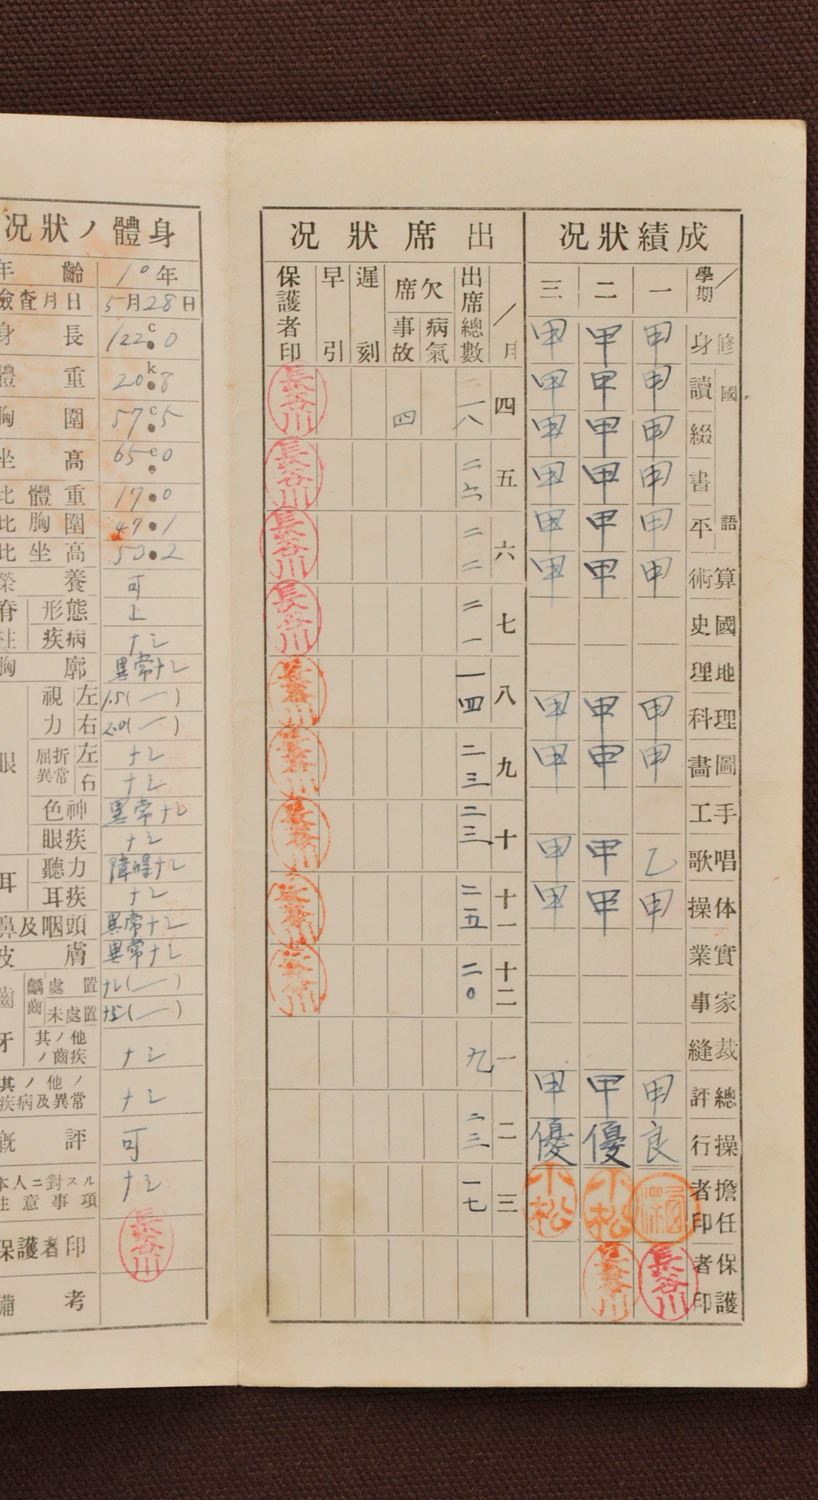 成績狀况
學期 一 二 三
修身 甲 甲 甲
國語 讀 甲 甲 甲
綴 甲 甲 甲
書 甲 甲 甲
平 甲 甲 甲
算術 甲 甲 甲
國史
地理
理科 甲 甲 甲
圖畵 甲 甲 甲
手工
唱歌 乙 甲 甲
体操 甲 甲 甲
實業
家事
裁縫
總評 甲 甲 甲
操行 良 優 優
擔任者印 小松 小松
保護者印 長谷川 長谷川
出席狀况
月 出席總數 欠席 病氣 事故 遲刻 早引 保護者印
四 一八 四 長谷川
五 二六 長谷川
六 二二 長谷川
七 二一 長谷川
八 一四 長谷川
九 二三 長谷川
十 二三 長谷川
十一 二五 長谷川
十二 二〇 長谷川
一 九
二 二三
三 一七
身體ノ狀况
年齡 10年
檢査月日 5月28日
身長 122.0
體重 20.8
胸圍 57.5
坐高 65.0
比體重 17.0
比胸圍 47.1
比坐高 53.2
榮養 可
脊柱 形態 正
疾病 ナシ
胸廓 異常ナシ
眼 視力 左 1.5(—)
右 2.0(—)
屈折異常 左 ナシ
右 ナシ
色神 異常ナシ
眼疾 ナシ
耳 聽力 障碍ナシ
耳疾 ナシ
鼻及咽頭 異常ナシ
皮膚 異常ナシ
齒牙 齲齒 處置 ナシ(—)
未處置 ナシ(—)
其ノ他ノ齒疾 ナシ
其ノ他ノ疾病及異常 ナシ
概評 可
本人ニ對スル注意事項 ナシ
保護者印 長谷川
備考